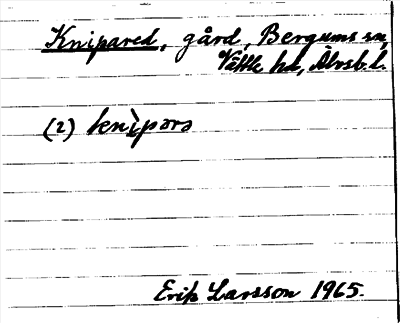 Knipared, gård, Bergums sn,
Vättle hd, Älvsb. l.
(2) knìpərs
Erik Larsson 1965.